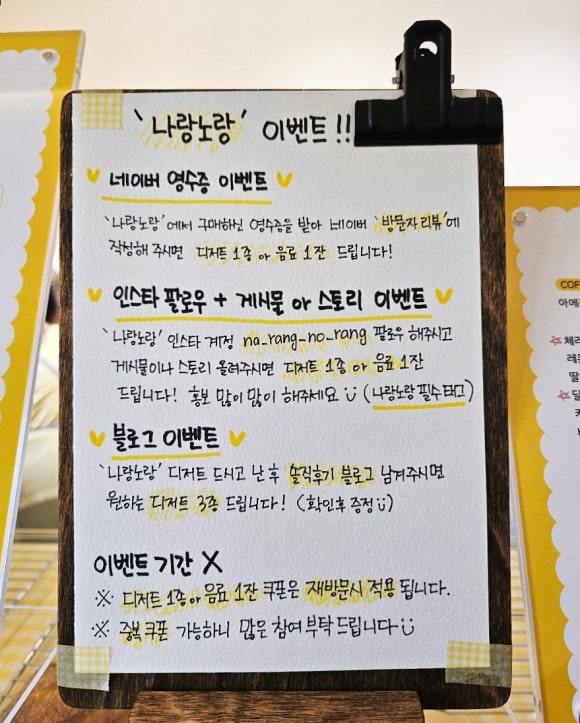 '나랑노랑' 이벤트!!
네이버 영수증 이벤트
'나랑노랑'에서 구매하신 영수증을 받아 네이버 '방문자 리뷰'에
작성해 주시면 디저트 1종 or 음료 1잔 드립니다!
인스타 팔로우 + 게시물 or 스토리 이벤트
'나랑노랑' 인스타 계정 na_rang_no_rang 팔로우 해주시고
게시물이나 스토리 올려주시면 디저트 1종 or 음료 1잔
드립니다! 홍보 많이 많이 해주세요 (나랑노랑 필수 태그)
블로그 이벤트
'나랑노랑' 디저트 드시고 난 후 솔직후기 블로그 남겨주시면
원하는 디저트 3종 드립니다! (확인 후 증정)
이벤트 기간 X
※ 디저트 1종 or 음료 1잔 쿠폰은 재방문시 적용 됩니다.
※ 중복 쿠폰 가능하니 많은 참여 부탁드립니다
COF
아메
체리
레
딸